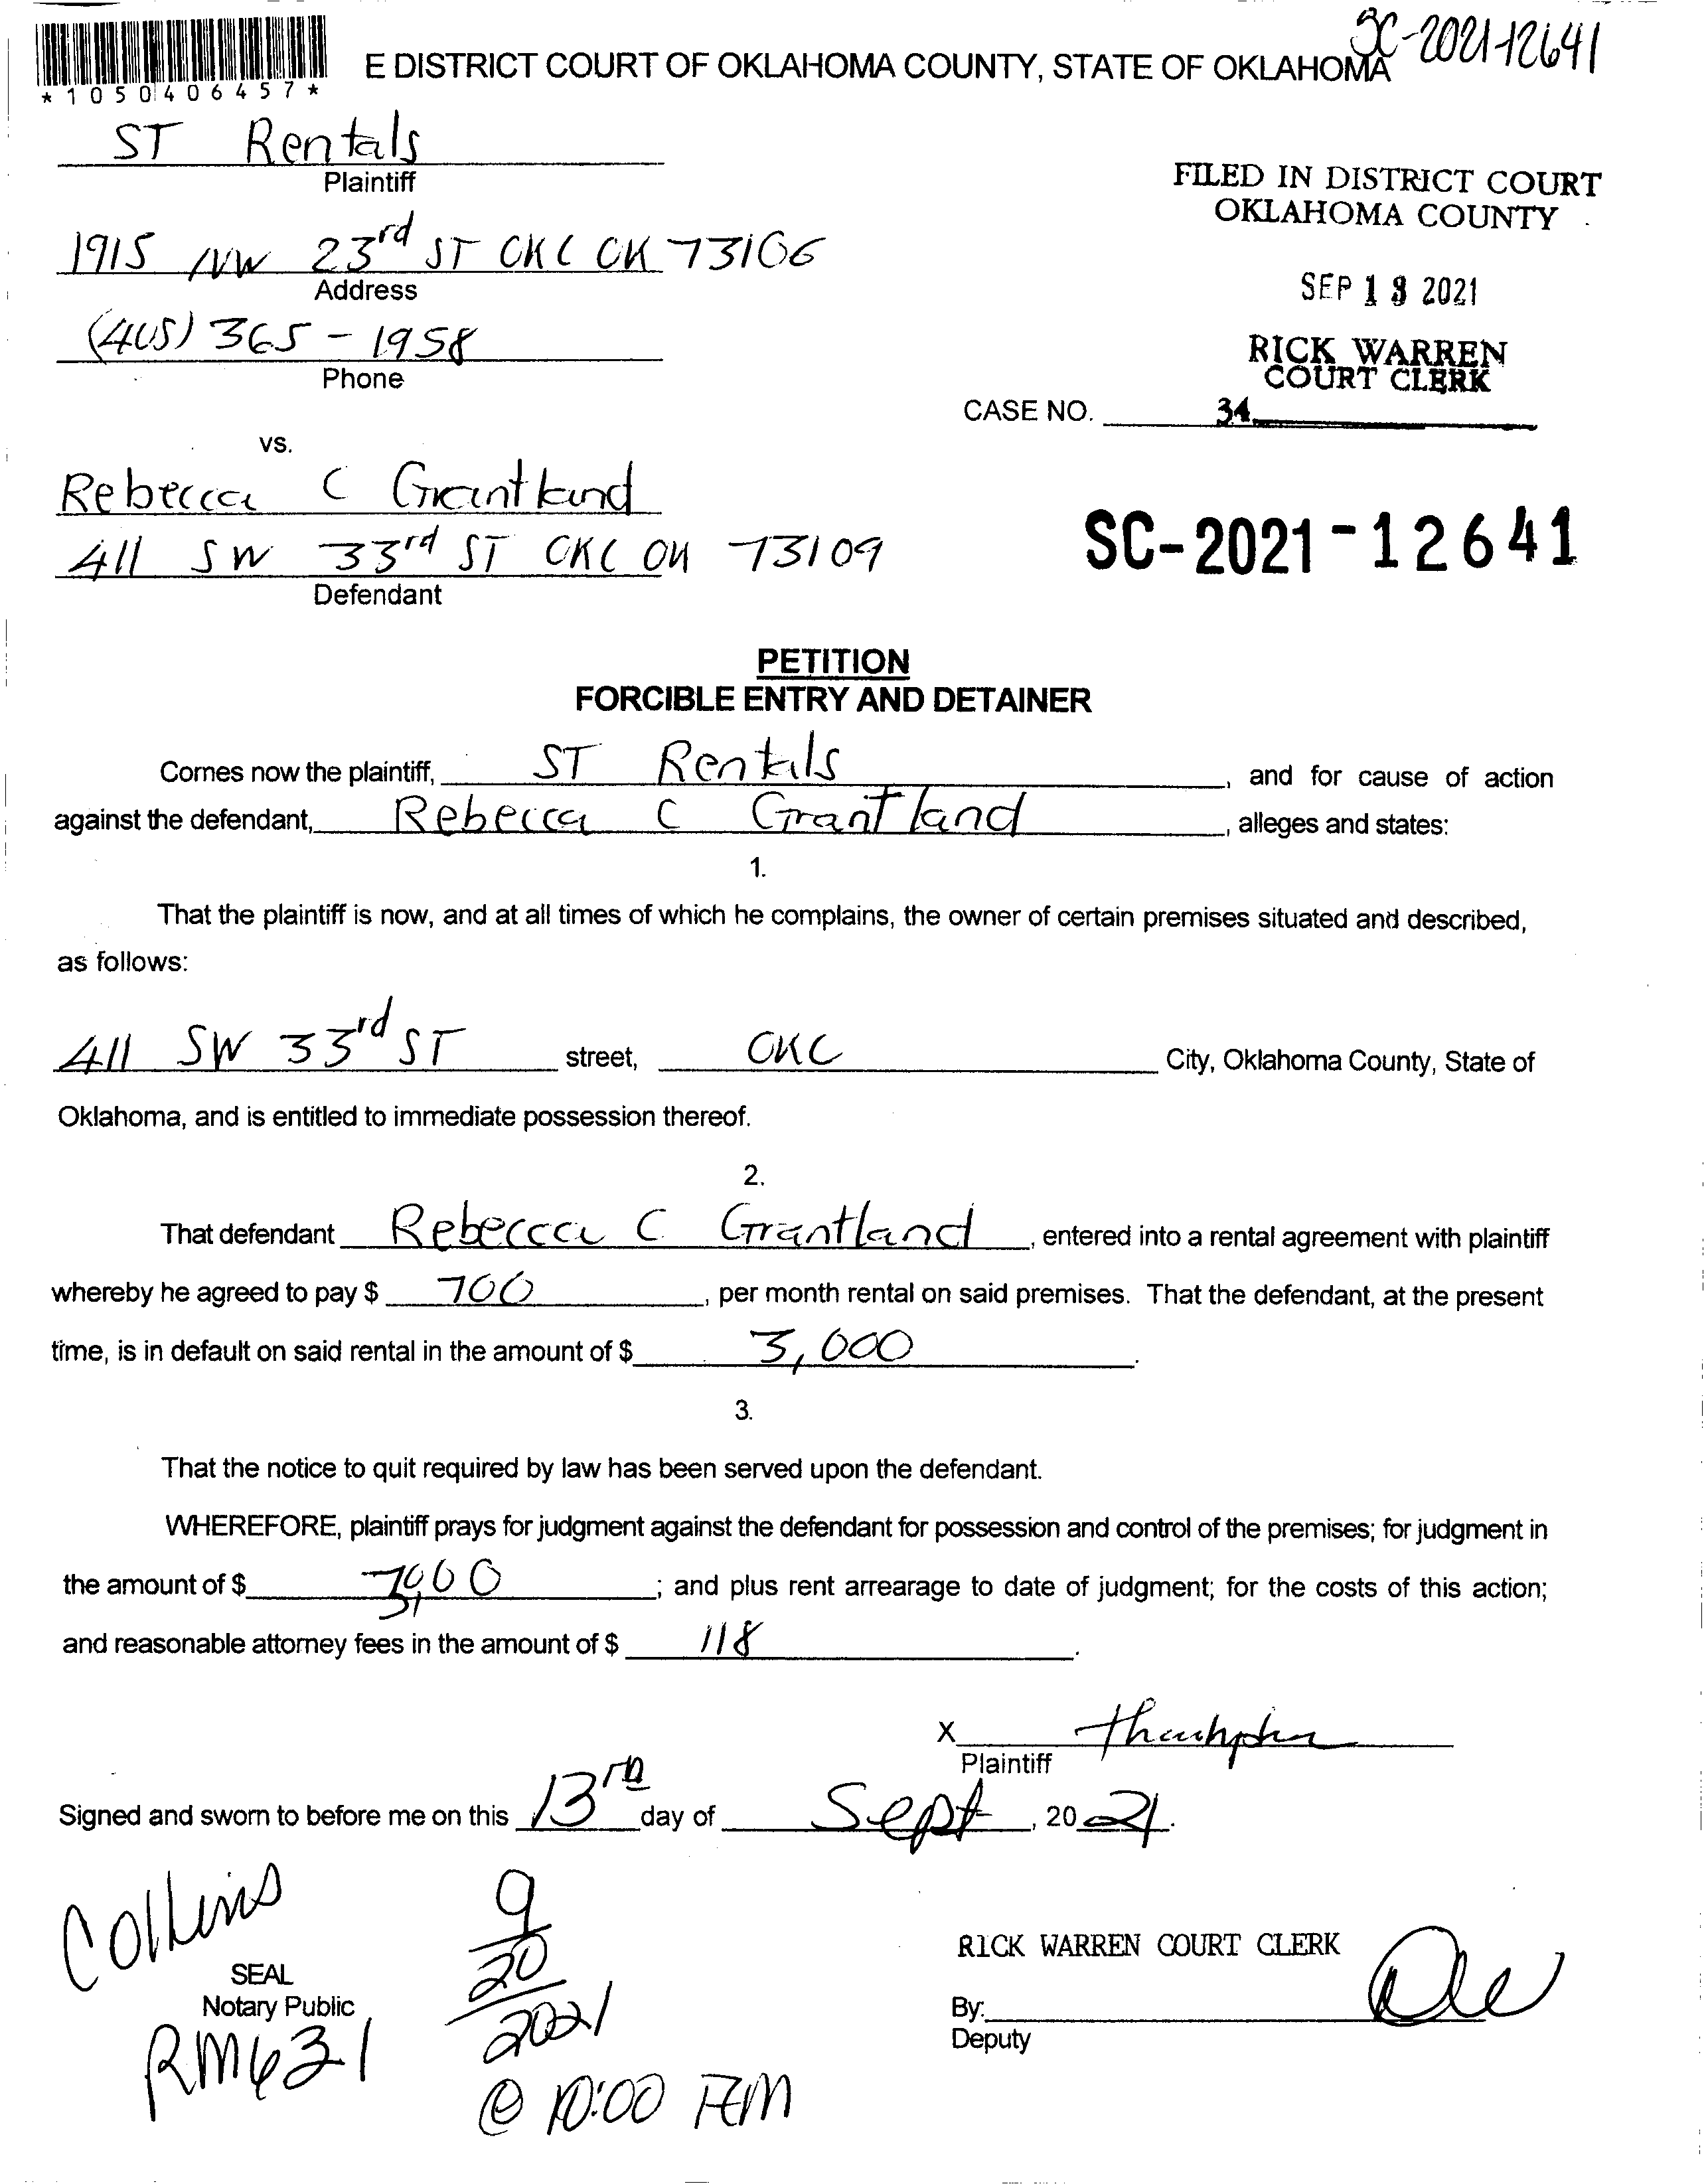 SC-2021-12641
E DISTRICT COURT OF OKLAHOMA COUNTY, STATE OF OKLAHOMA
*1050406457*
ST Rentals
Plaintiff
FILED IN DISTRICT COURT
OKLAHOMA COUNTY
1915 NW 23rd ST OKC OK 73106
Address
SEP 13 2021
(405) 365-1958
Phone
RICK WARREN
COURT CLERK
CASE NO. 34
vs.
Rebecca C Grantland
411 SW 33rd ST OKC OK 73109
Defendant
SC-2021-12641
PETITION
FORCIBLE ENTRY AND DETAINER
Comes now the plaintiff, ST Rentals, and for cause of action
against the defendant, Rebecca C Grantland, alleges and states:
1.
That the plaintiff is now, and at all times of which he complains, the owner of certain premises situated and described,
as follows:
411 SW 33rd ST street, OKC City, Oklahoma County, State of
Oklahoma, and is entitled to immediate possession thereof.
2.
That defendant Rebecca C Grantland, entered into a rental agreement with plaintiff
whereby he agreed to pay $ 700, per month rental on said premises. That the defendant, at the present
time, is in default on said rental in the amount of $ 3,000.
3.
That the notice to quit required by law has been served upon the defendant.
WHEREFORE, plaintiff prays for judgment against the defendant for possession and control of the premises; for judgment in
the amount of $ ; and plus rent arrearage to date of judgment; for the costs of this action;
and reasonable attorney fees in the amount of $ 118.
X
Plaintiff
Signed and sworn to before me on this 13 day of Sept, 2021.
Collins
SEAL
Notary Public
RM631
9
20
2021
@ 10:00 AM
RICK WARREN COURT CLERK
By:
Deputy